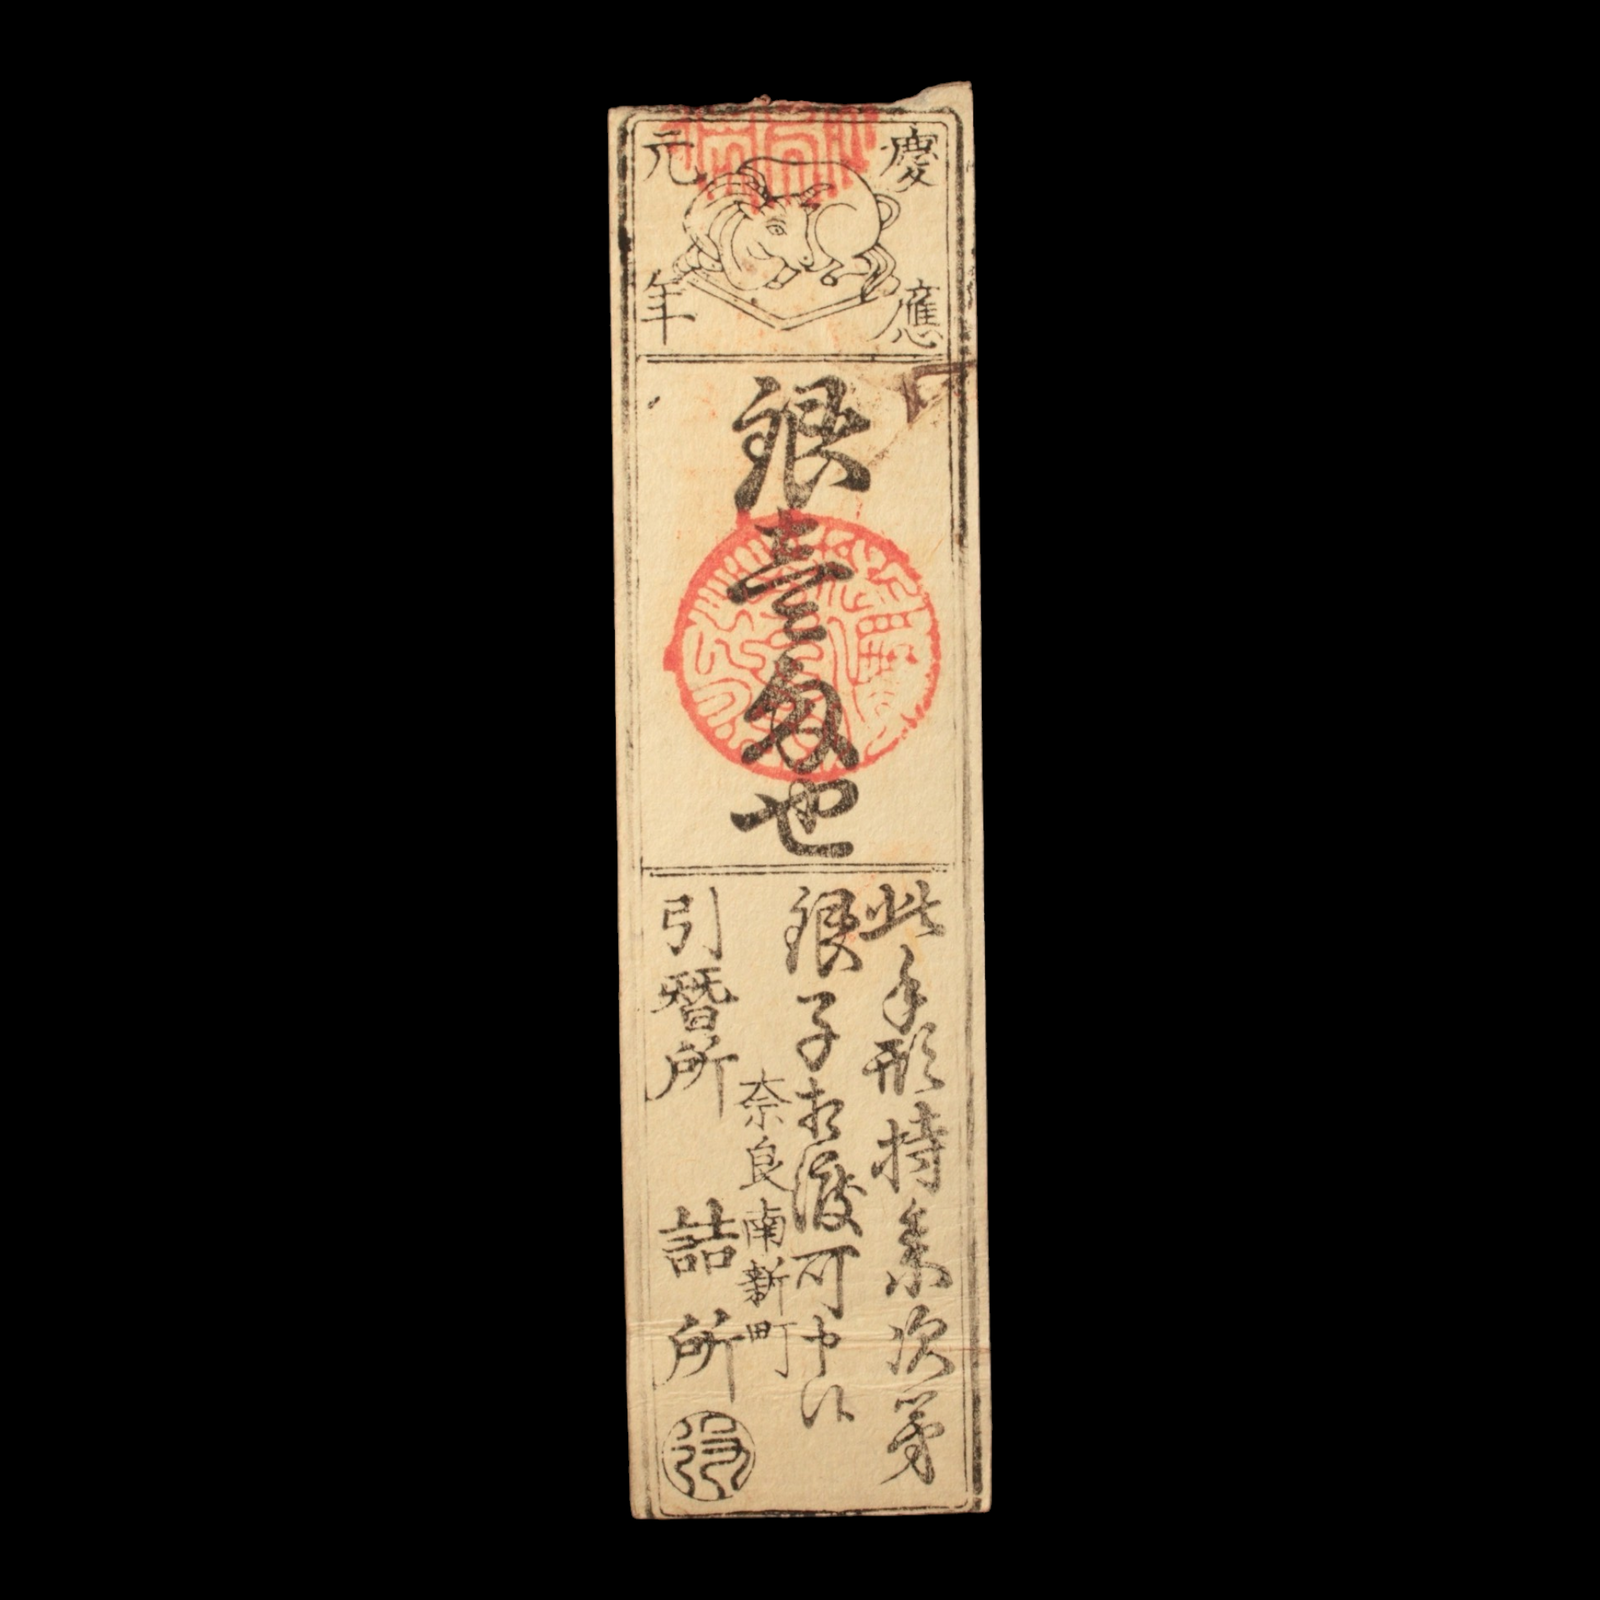 慶應
元年
銀壹匁也
此手形持来次第
銀子相渡可申候
奈良南新町
引替所 詰所